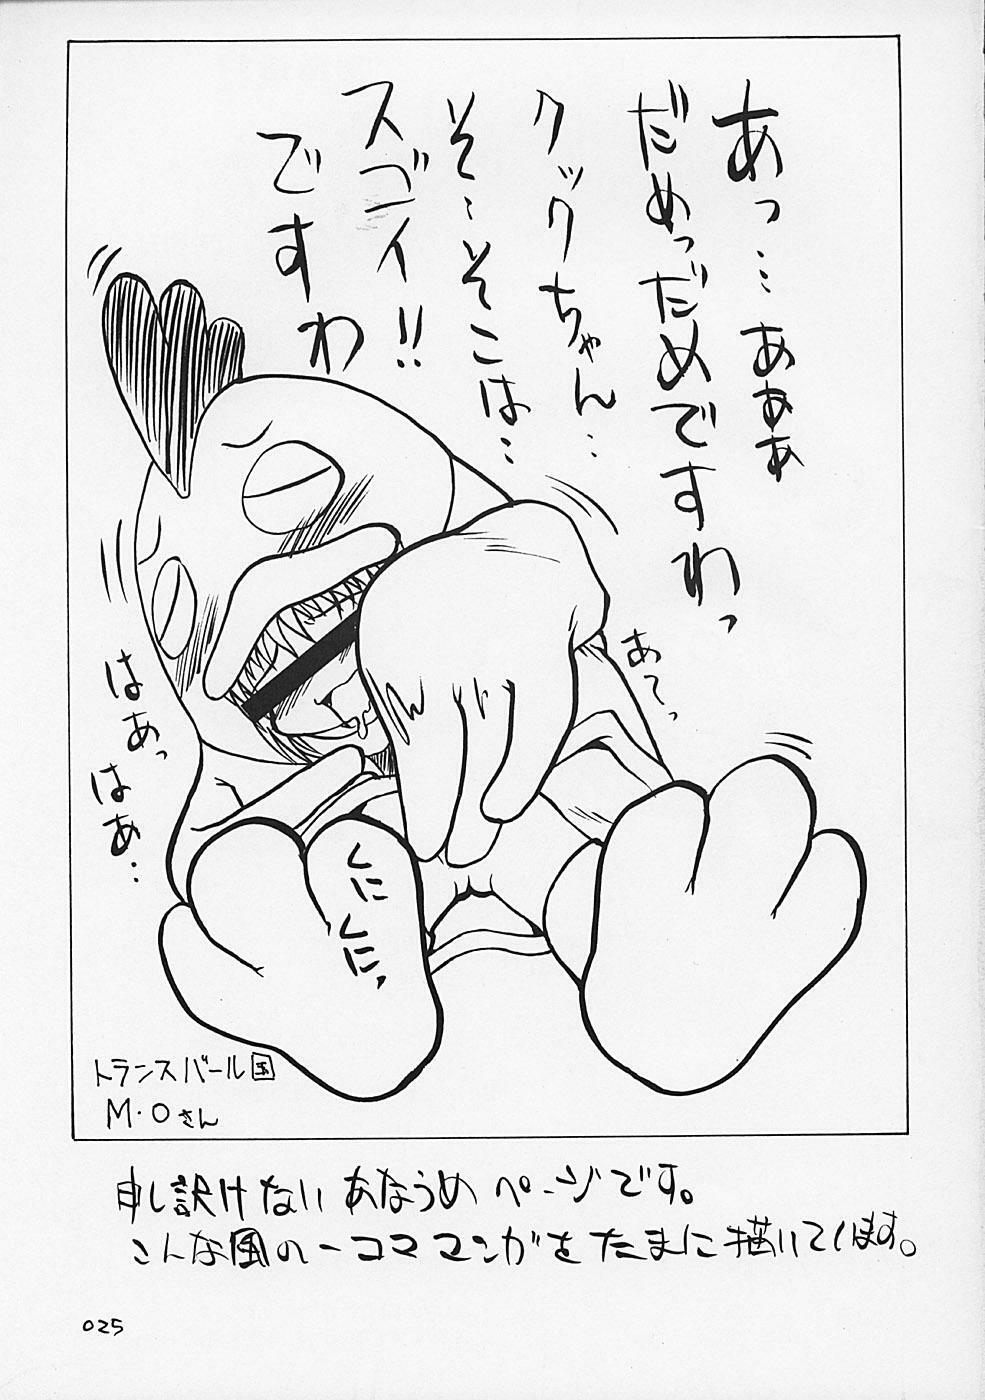 あっ…ぁぁぁ
だめっだめですわっ
クックちゃん…
そ…そこは…
スゴイ!!
ですわ
あてっ
はぁっ
はぁ…
くに
くにっ
トランスバール国
M・Oさん
申し訳けない あなうめページです。
こんな風の一コママンガをたまに描いてます。
025